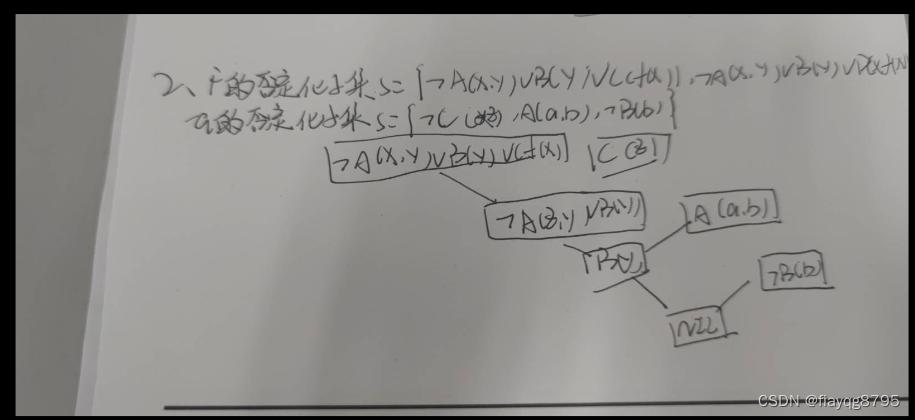 2、F的否定化子集S={¬A(x,y)∨B(y)∨C(f(x)),¬A(x,y)∨B(y)∨D(x,f(x))
的否定化子集S={¬C(z),A(a,b),¬B(b)}
¬A(x,y)∨B(y)∨C(f(x)) C(z)
¬A(z,y)∨B(y) A(a,b)
B(y) ¬B(b)
NIL
CSDN @flayqg8795